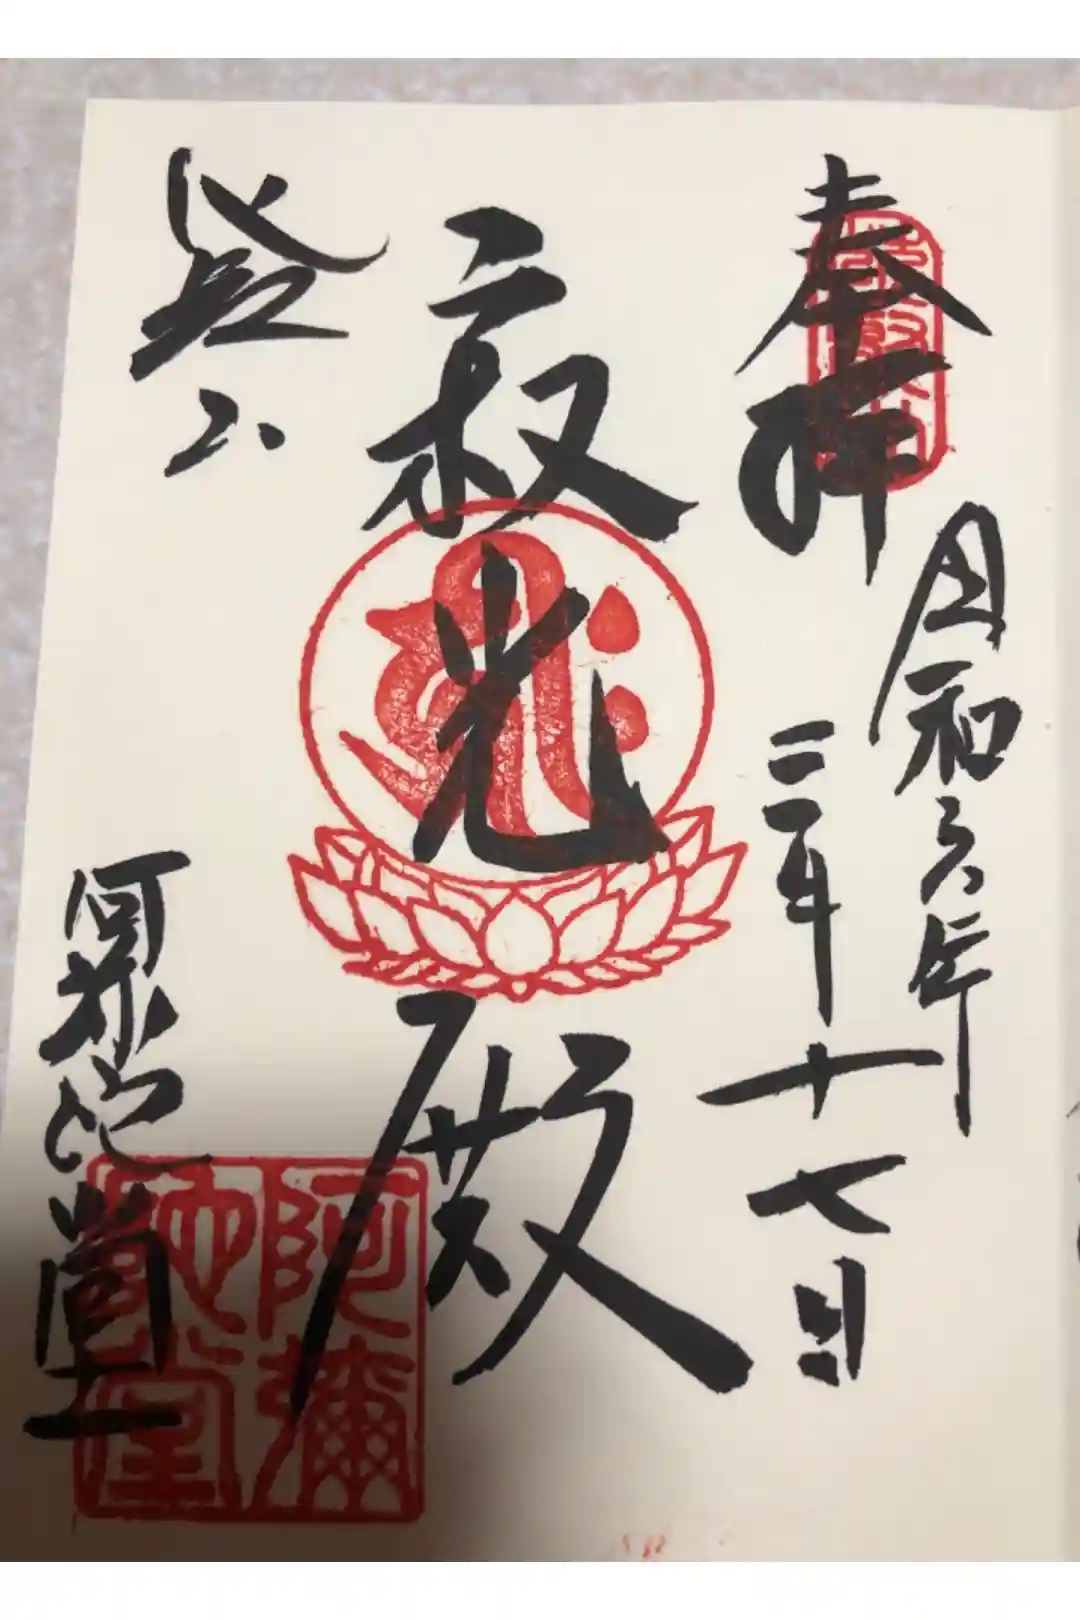 奉拝
令和六年
十七日
寂光殿
山
阿弥陀堂
阿彌
陀堂